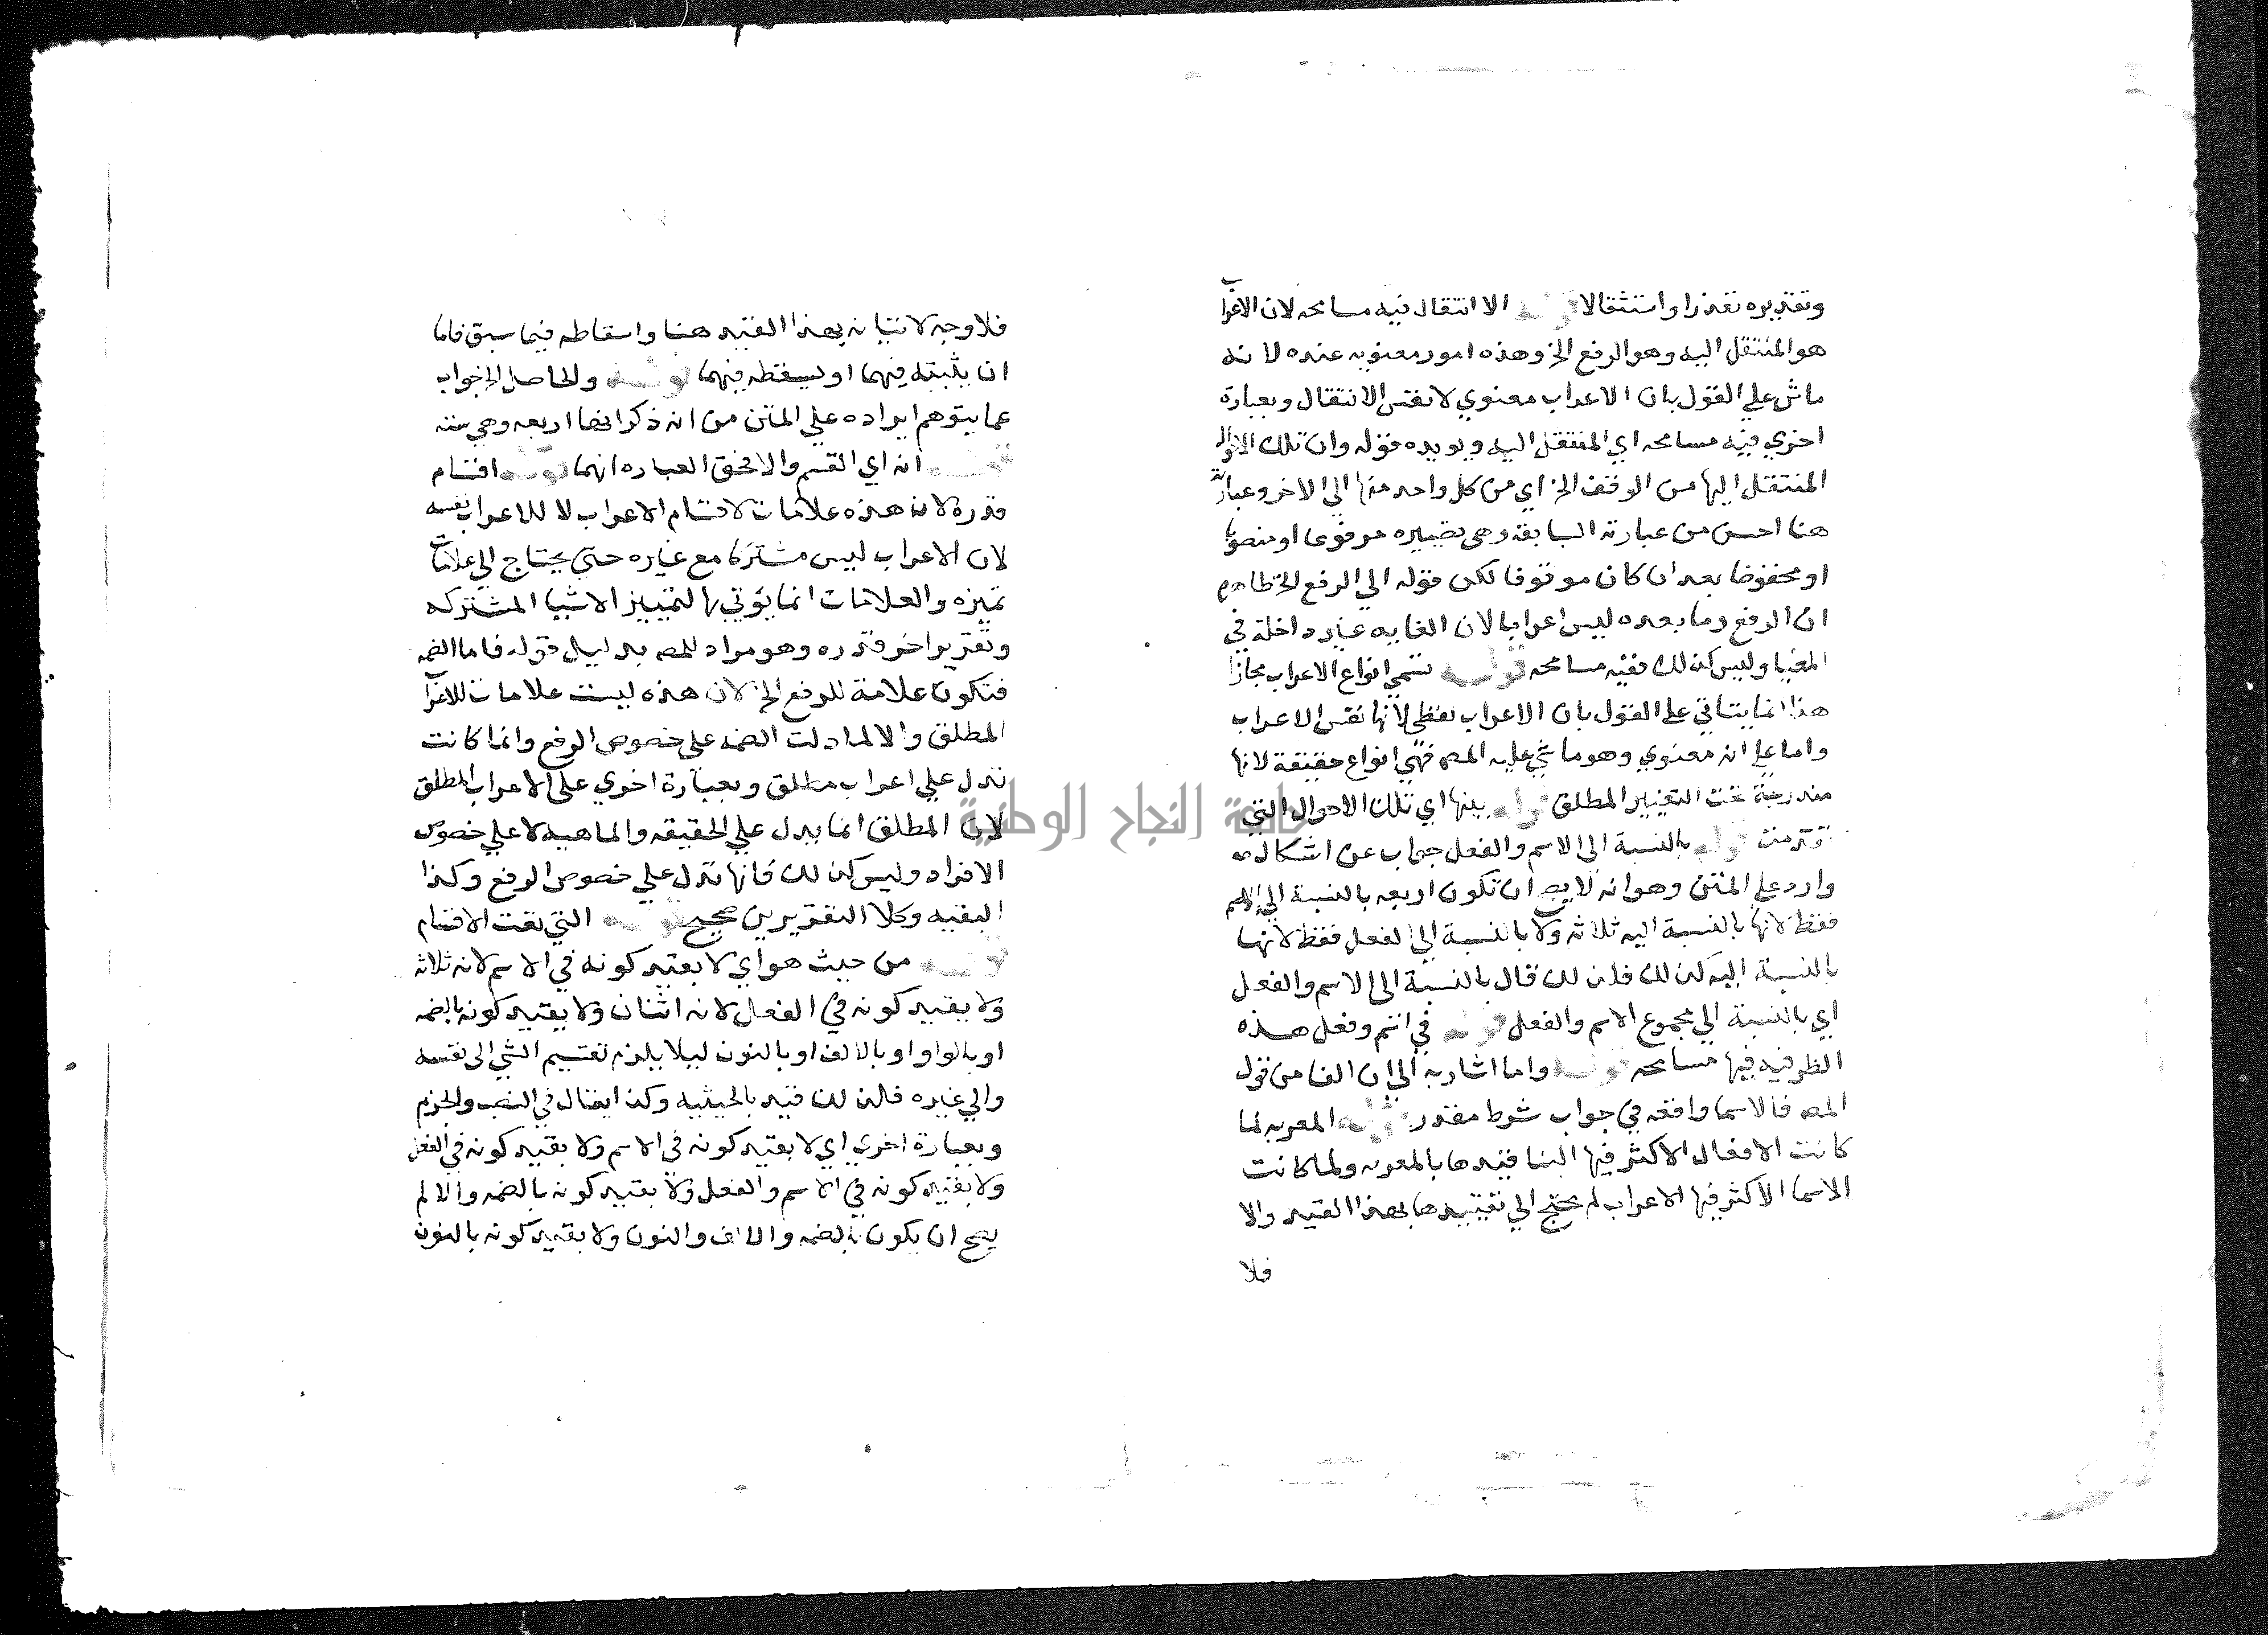 وتقديره تعذرا واستثقالا قوله الا انتقال فيه مسامحه لان الاعراب
هو المنتقل اليه وهو الرفع الخ وهذه امور معنويه عنده لانه
ماش علي القول بان الاعراب معنوي لا نفس الانتقال وبعبارة
اخري فيه مسامحه اي المنتقل اليه ويويده قوله وان تلك الاحوال
المنتقل اليها من الوقف الخ اي من كل واحد منها الي الاخر وعبارته
هنا احسن من عبارته السابقه وهي تصييره مرفوعا او منصوبا
او مخفوضا بعد ان كان موقوفا لكن قوله الي الرفع الخ ظاهره
ان الرفع وما بعده ليس اعرابا لان الغايه غير داخلة في
المغيا وليس كذلك ففيه مسامحه قوله تسمي انواع الاعراب مجازا
هذا انما يتاتي علي القول بان الاعراب لفظي لانها نفس الاعراب
واما علي انه معنوي وهو ما مشي عليه المص فهي انواع حقيقة لانها
مندرجة تحت التغيير المطلق قوله بينها اي تلك الاحوال التي
قوله بالنسبة الي الاسم والفعل جواب عن اشكال
وارد علي المتن وهو انه لا يصح ان تكون اربعه بالنسبة الي الاسم
فقط لانها بالنسبة اليه ثلاثه ولا بالنسبة الي الفعل فقط لانها
بالنسبة اليه كذلك فلذلك قال بالنسبة الي الاسم والفعل
اي بالنسبة الي مجموع الاسم والفعل قوله في اسم وفعل هذه
الظرفيه فيها مسامحه قوله واما اشار به الي ان الفا من قول
المص فالاسما واقعه في جواب شرط مقدر قوله المعربه لما
كانت الافعال الاكثر فيها البنا قيدها بالمعربه ولما كانت
الاسما الاكثر فيها الاعراب لم يحتج الي تقييدها بهذا القيد والا
فلا
فلا وجه لاتيانه بهذا القيد هنا واسقاطه فيما سبق فاما
ان يثبته فيهما او يسقطه فيهما قوله والحاصل الخ جواب
عما يتوهم ايراده علي المتن من انه ذكر انها اربعه وهي سته
قوله انه اي القسم والا فحق العباره انهما قوله اقسام
قدره لان هذه علامات لاقسام الاعراب لا للاعراب نفسه
لان الاعراب ليس مشتركا مع غيره حتي يحتاج الي علامات
تميزه والعلامات انما يؤتي بها لتمييز الاشيا المشتركه
وتقرير اخر قدره وهو مراد للمص بدليل قوله فاما الضمه
فتكون علامة للرفع الخ لان هذه ليست علامات للاعراب
المطلق والا لما دلت الضمه علي خصوص الرفع وانما كانت
تدل علي اعراب مطلق وبعبارة اخري علي الاعراب المطلق
لان المطلق انما يدل علي الحقيقه والماهيه لا علي خصوص
الافراد وليس كذلك فانها تدل علي خصوص الرفع وكذا
البقيه وكلا التقريرين صحيح قوله التي نعت الاقسام
قوله من حيث هو اي لا بقيد كونه في الاسم لانه ثلاثه
ولا بقيد كونه في الفعل لانه اثنان ولا بقيد كونه بالضمه
او بالواو او بالالف او بالنون ليلا يلزم تقسيم الشي الي نفسه
والي غيره فلذلك قيد بالحيثيه وكذا يقال في النصب والجزم
وبعبارة اخري اي لا بقيد كونه في الاسم ولا بقيد كونه في الفعل
ولا بقيد كونه في الاسم والفعل ولا بقيد كونه بالضمه والا لم
يصح ان يكون بالضمه والالف والنون ولا بقيد كونه بالنون
جامعة النجاح الوطنية